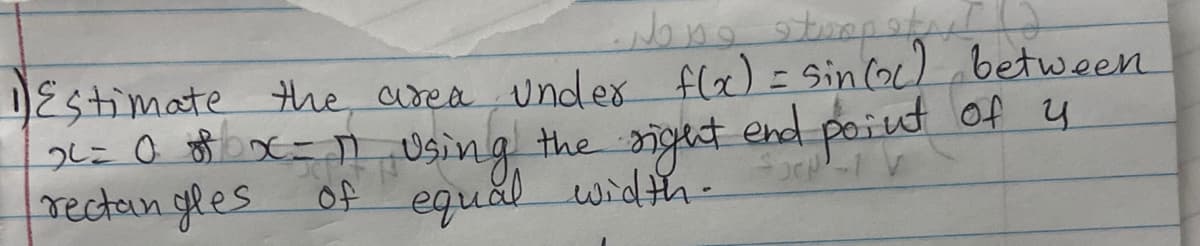 1) Estimate the area under f(x) = sin(x) between
x = 0 & x = π using the right end point of 4
rectangles of equal width.